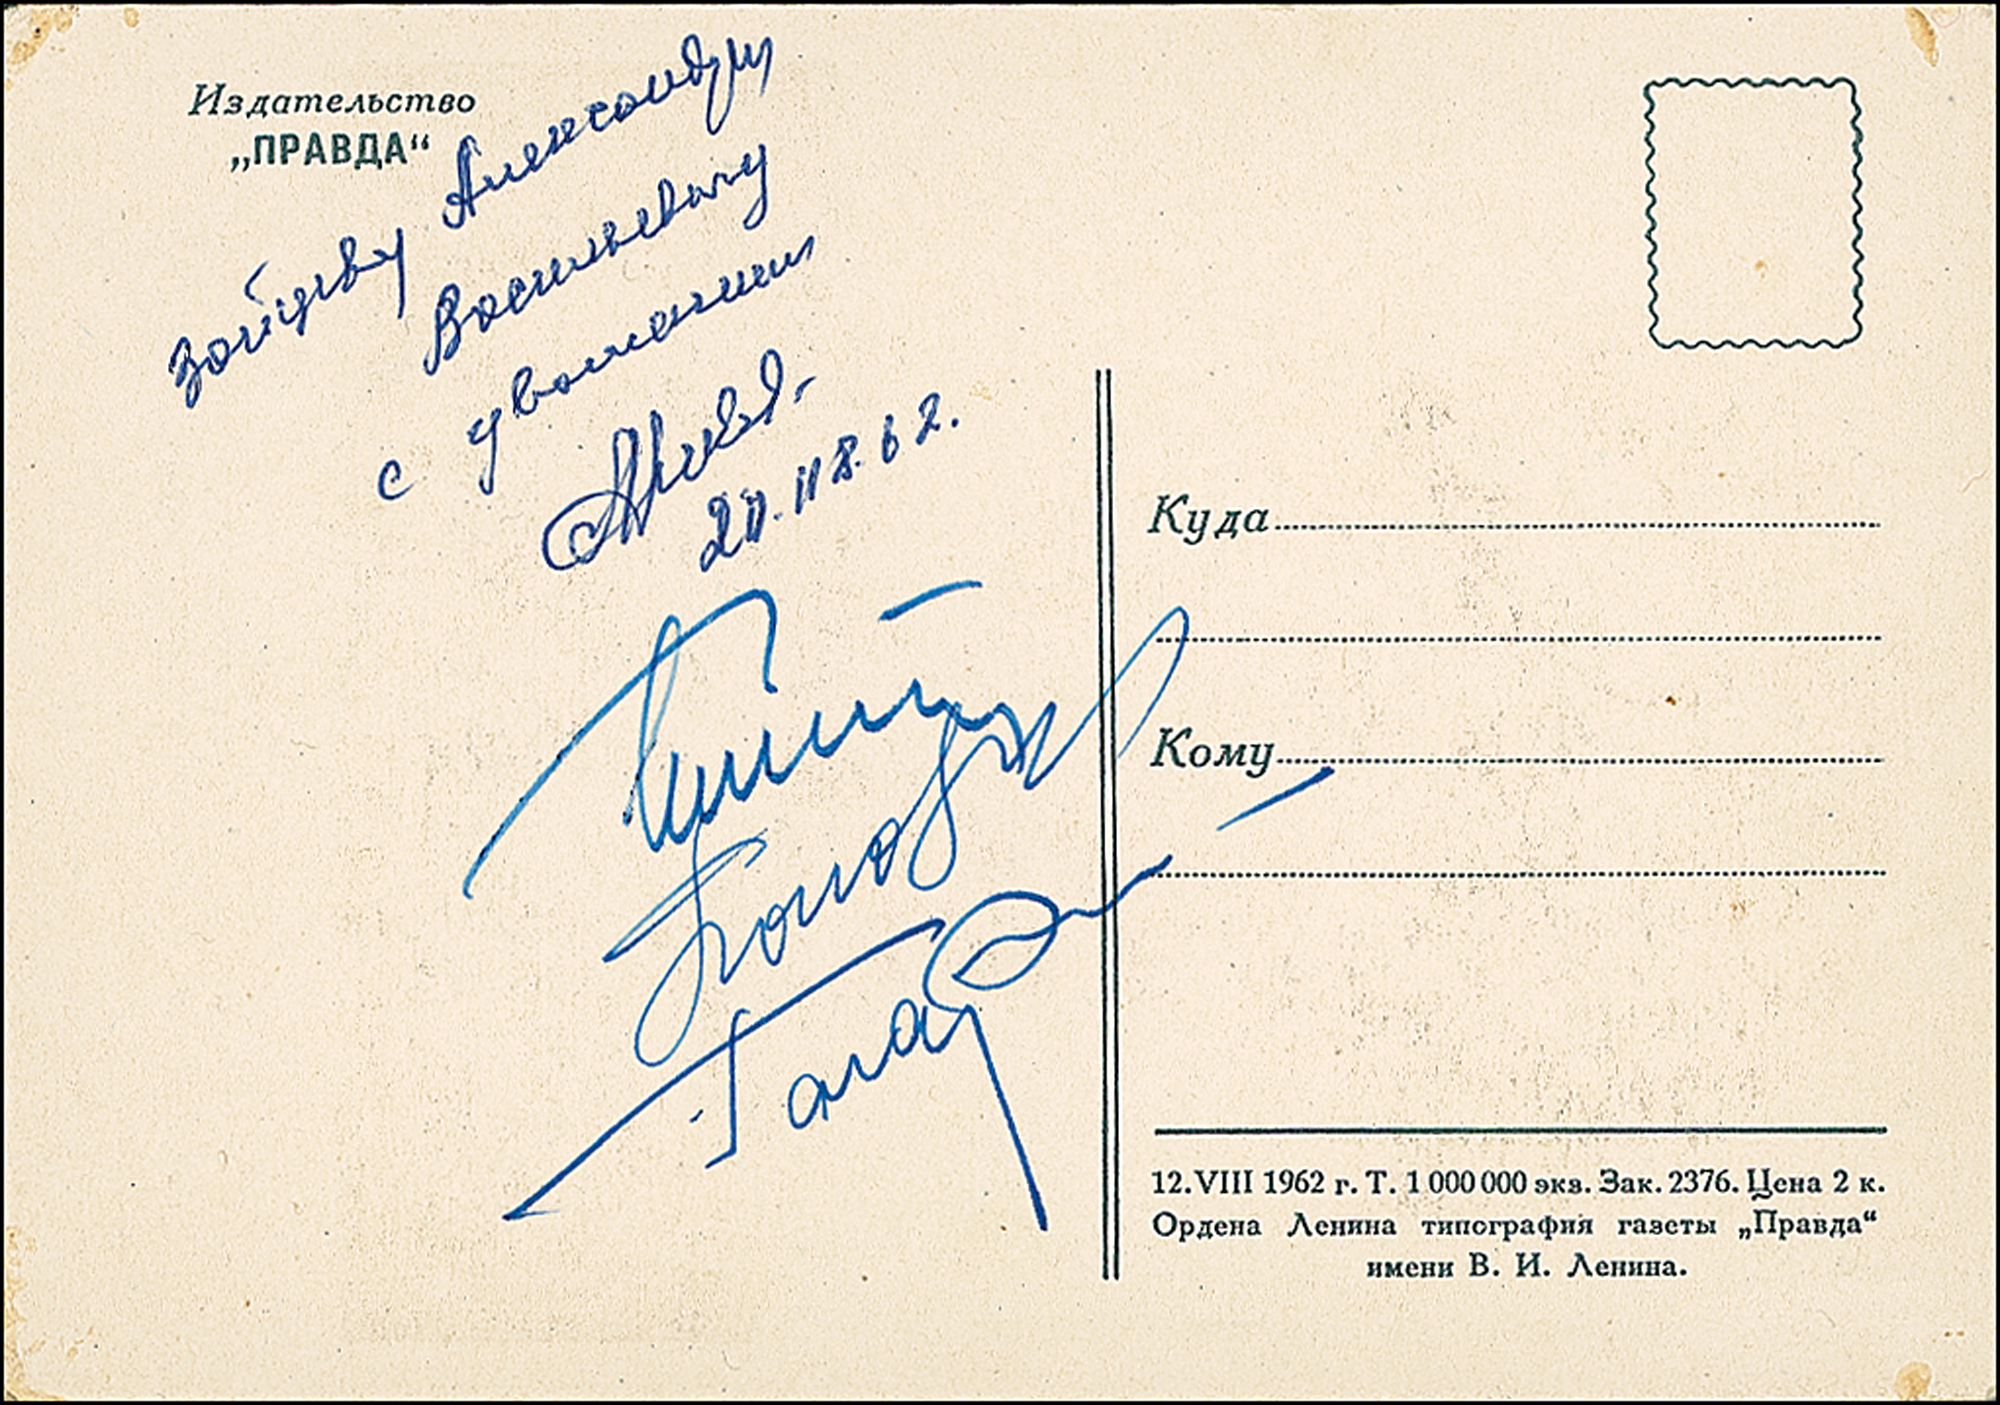 Издательство
„ПРАВДА“
Зайцеву Александру
Васильевичу
с уважением
Куда
Кому
12.VIII 1962 г. Т. 1 000 000 экз. Зак. 2376. Цена 2 к.
Ордена Ленина типография газеты „Правда“
имени В. И. Ленина.